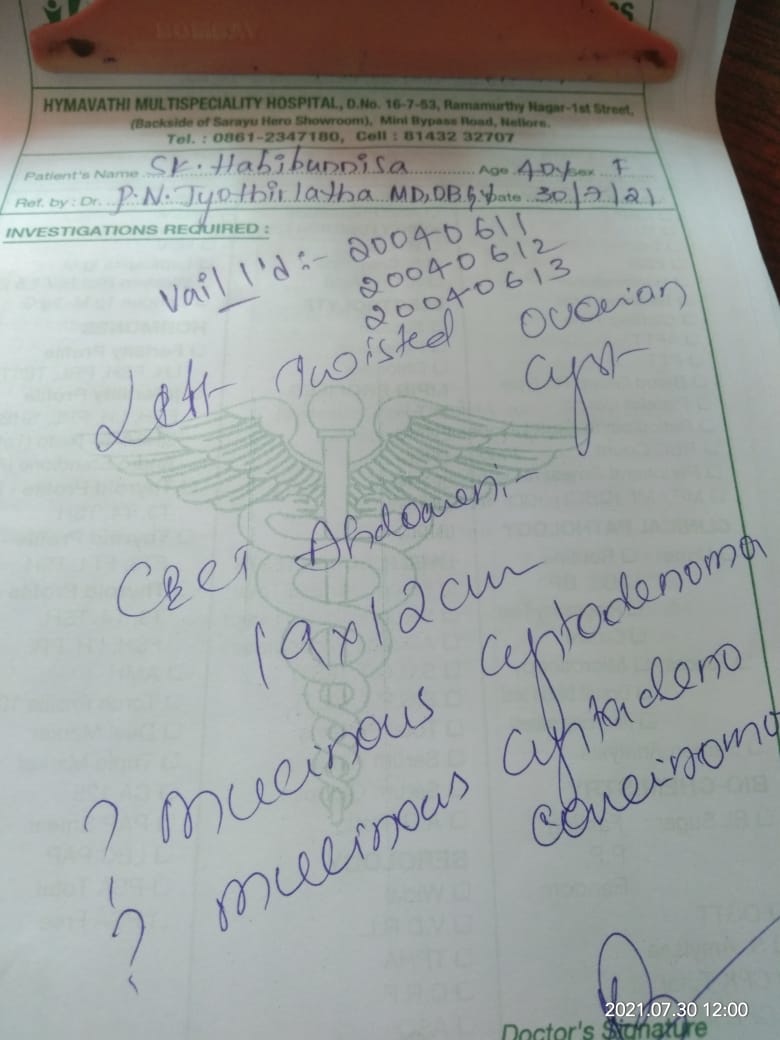 HYMAVATHI MULTISPECIALITY HOSPITAL, D.No. 16-7-53, Ramamurthy Nagar-1st Street,
(Backside of Sarayu Hero Showroom), Mini Bypass Road, Nellore.
Tel. : 0861-2347180, Cell : 81432 32707
Patient's Name SK. Habibunnisa Age 40y Sex F
Ref. by : Dr. P.N. Jyothirlatha MD, OBGY Date 30/7/21
INVESTIGATIONS REQUIRED :
Vail I'd :- 20040611
20040612
20040613
Left Twisted Ovarian
Cyst
CECT Abdomen :-
19x12cm
? mucinous cyptodenoma
? mucinous cyptadeno
carcinoma
2021.07.30 12:00
Doctor's Signature